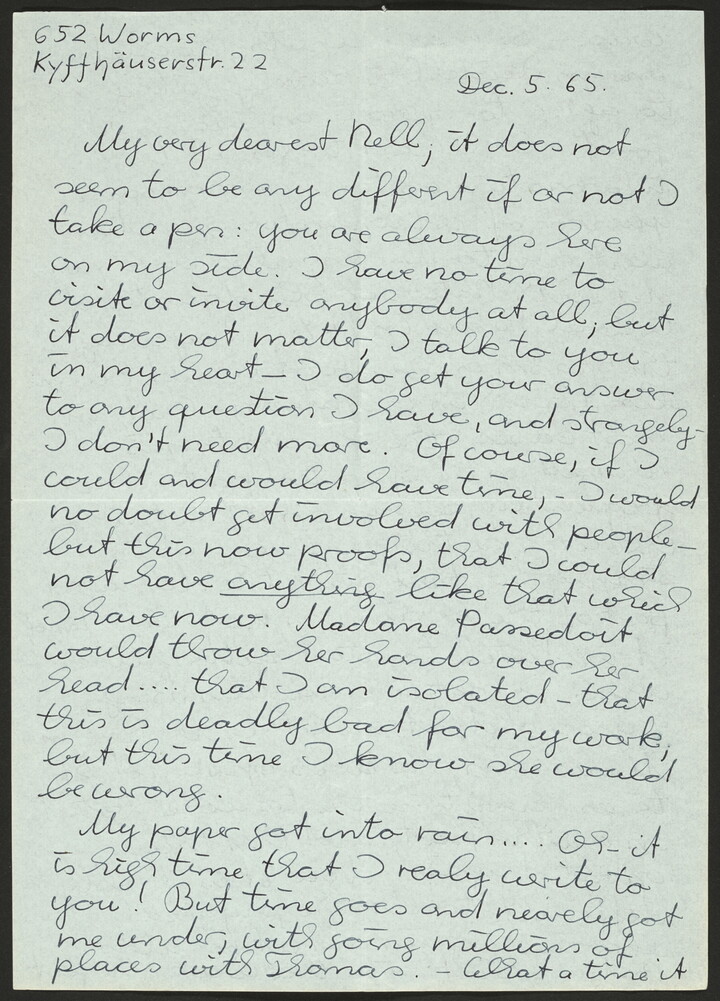 652 Worms
Kyffhäuserstr. 22
Dec. 5. 65.
My very dearest Nell, it does not
seem to be any different if or not I
take a pen: you are always here
on my side. I have no time to
visite or invite anybody at all, but
it does not matter, I talk to you
in my heart – I do get your answer
to any question I have, and strangely –
I don't need more. Of course, if I
could and would have time, – I would
no doubt get involved with people –
but this now proofs, that I could
not have anything like that which
I have now. Madame Passedoit
would throw her hands over her
head.... that I am isolated – that
this is deadly bad for my work,
but this time I know she would
be wrong.
My paper got into rain.... Oh – it
is high time that I realy write to
you! But time goes and nearely got
me under, with going millions of
places with Thomas. – What a time it